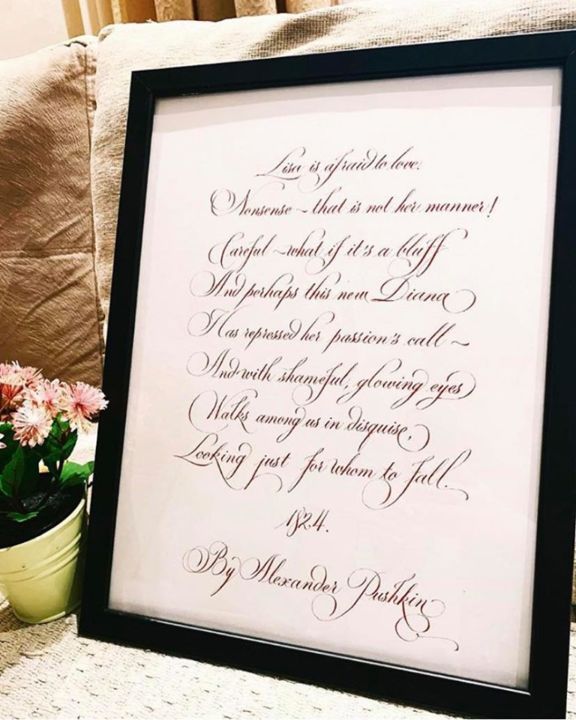 Lisa is afraid to love.
Nonsense ~ that is not her manner!
Careful ~ what if it's a bluff
And perhaps this new Diana
Has repressed her passion's call ~
And with shameful, glowing eyes
Walks among us in disguise,
Looking just for whom to fall.
1824.
By Alexander Pushkin